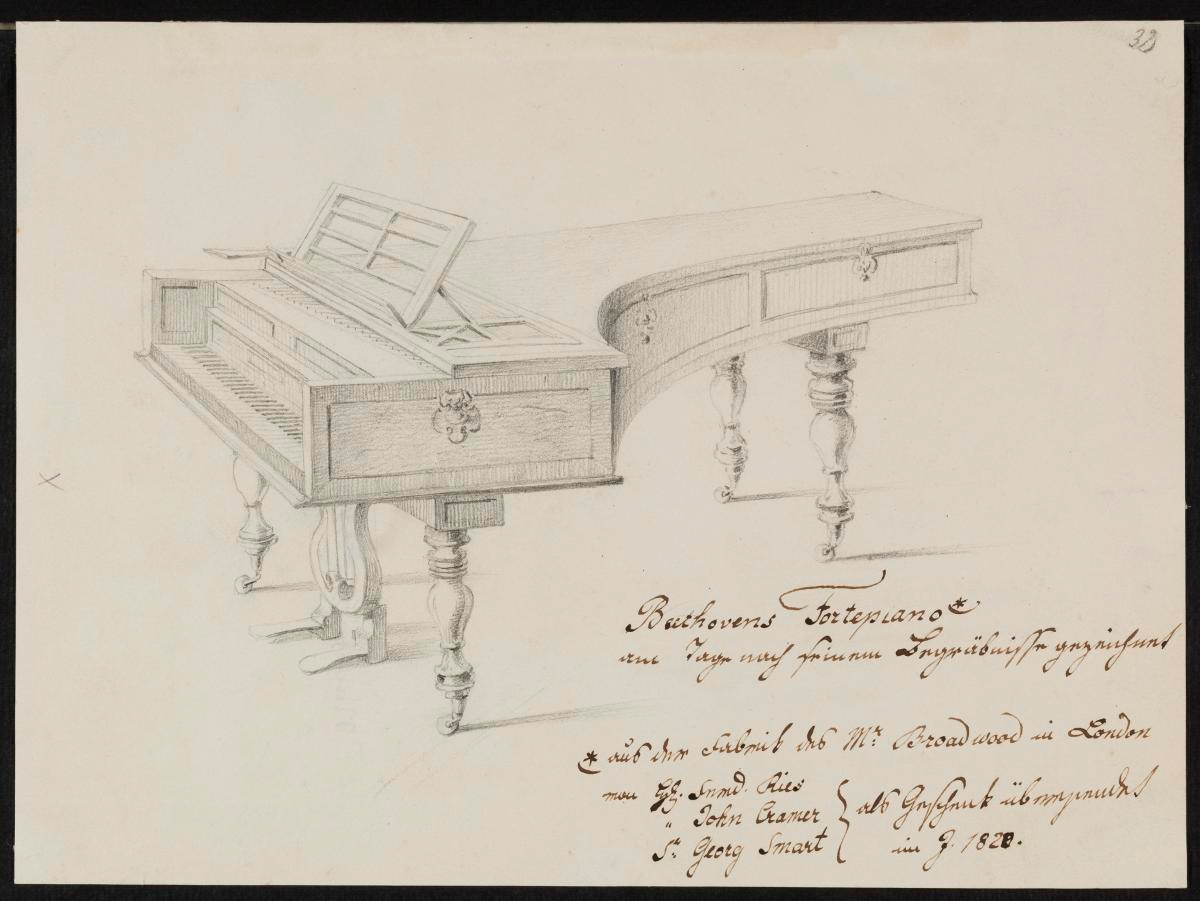 32
Beethovens Fortepiano*
am Tage nach seinem Begräbnisse gezeichnet
* aus der Fabrik des Mr. Broadwood in London
von Ferd. Ries
" John Cramer
Sr. Georg Smart
als Geschenk übersendet
im J. 1820.